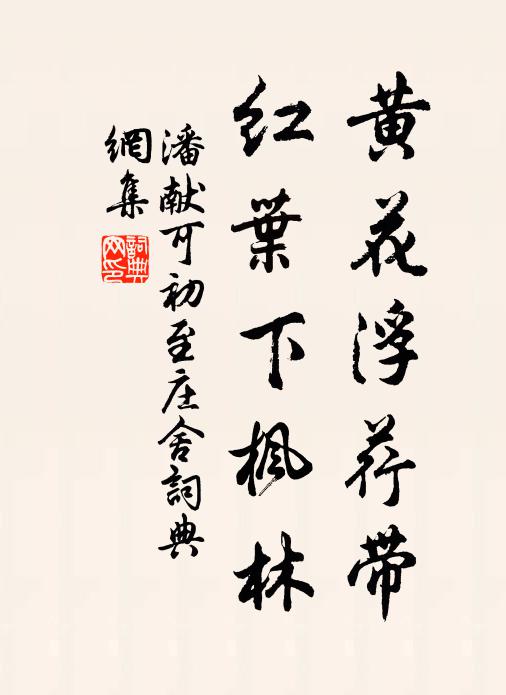 黄花浮荇带
红葉下枫林
潘献可初至庄舍詞典
網集
詞典網印